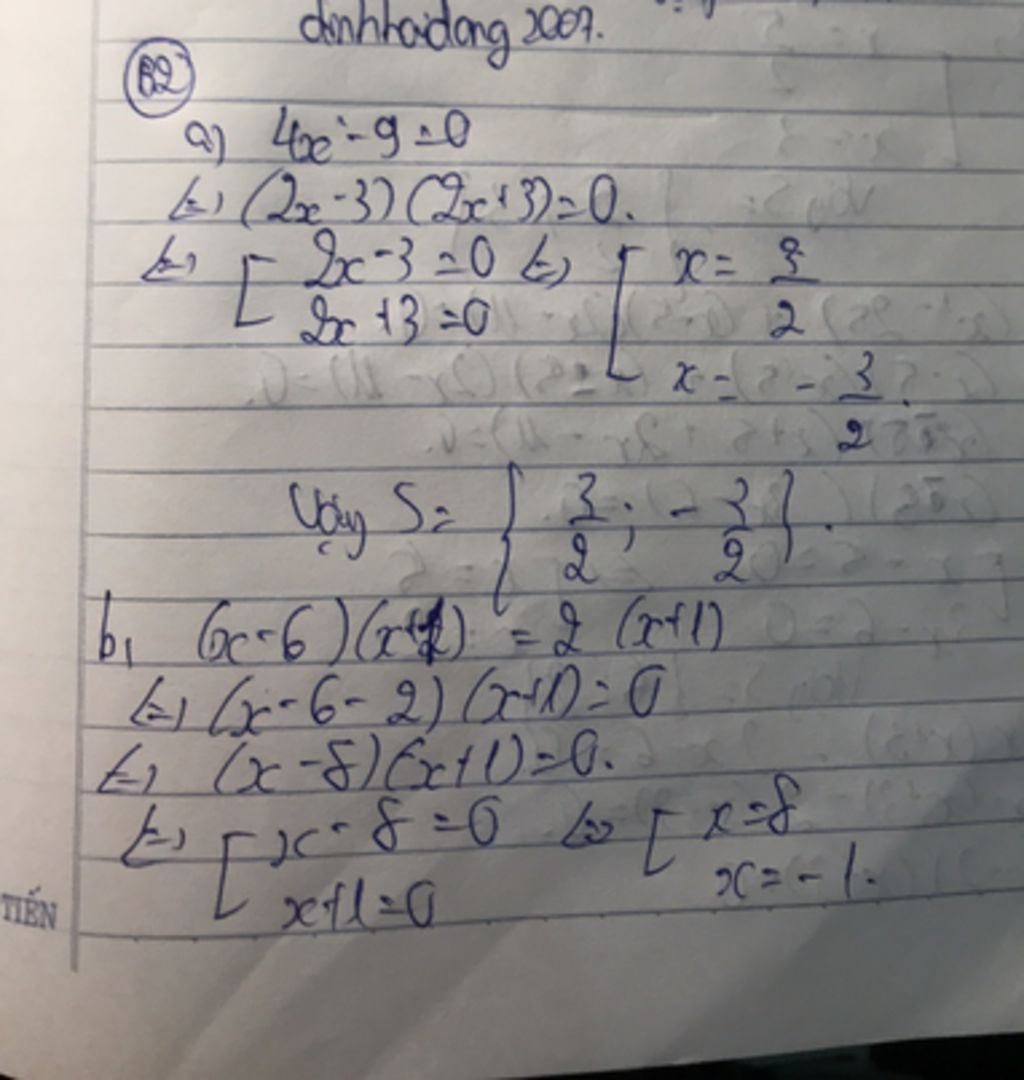 dinhhaidang 2007.
B2
a) 4x² - 9 = 0
<=> (2x - 3)(2x + 3) = 0.
<=> [ 2x - 3 = 0 <=> [ x = 3/2
2x + 3 = 0
x = - 3/2.
Vậy S = { 3/2 ; - 3/2 }.
b, (x - 6)(x+1) = 2 (x+1)
<=> (x - 6 - 2)(x+1) = 0
<=> (x - 8)(x+1) = 0.
<=> [ x - 8 = 0 <=> [ x = 8
x+1 = 0 x = - 1.
TIẾN